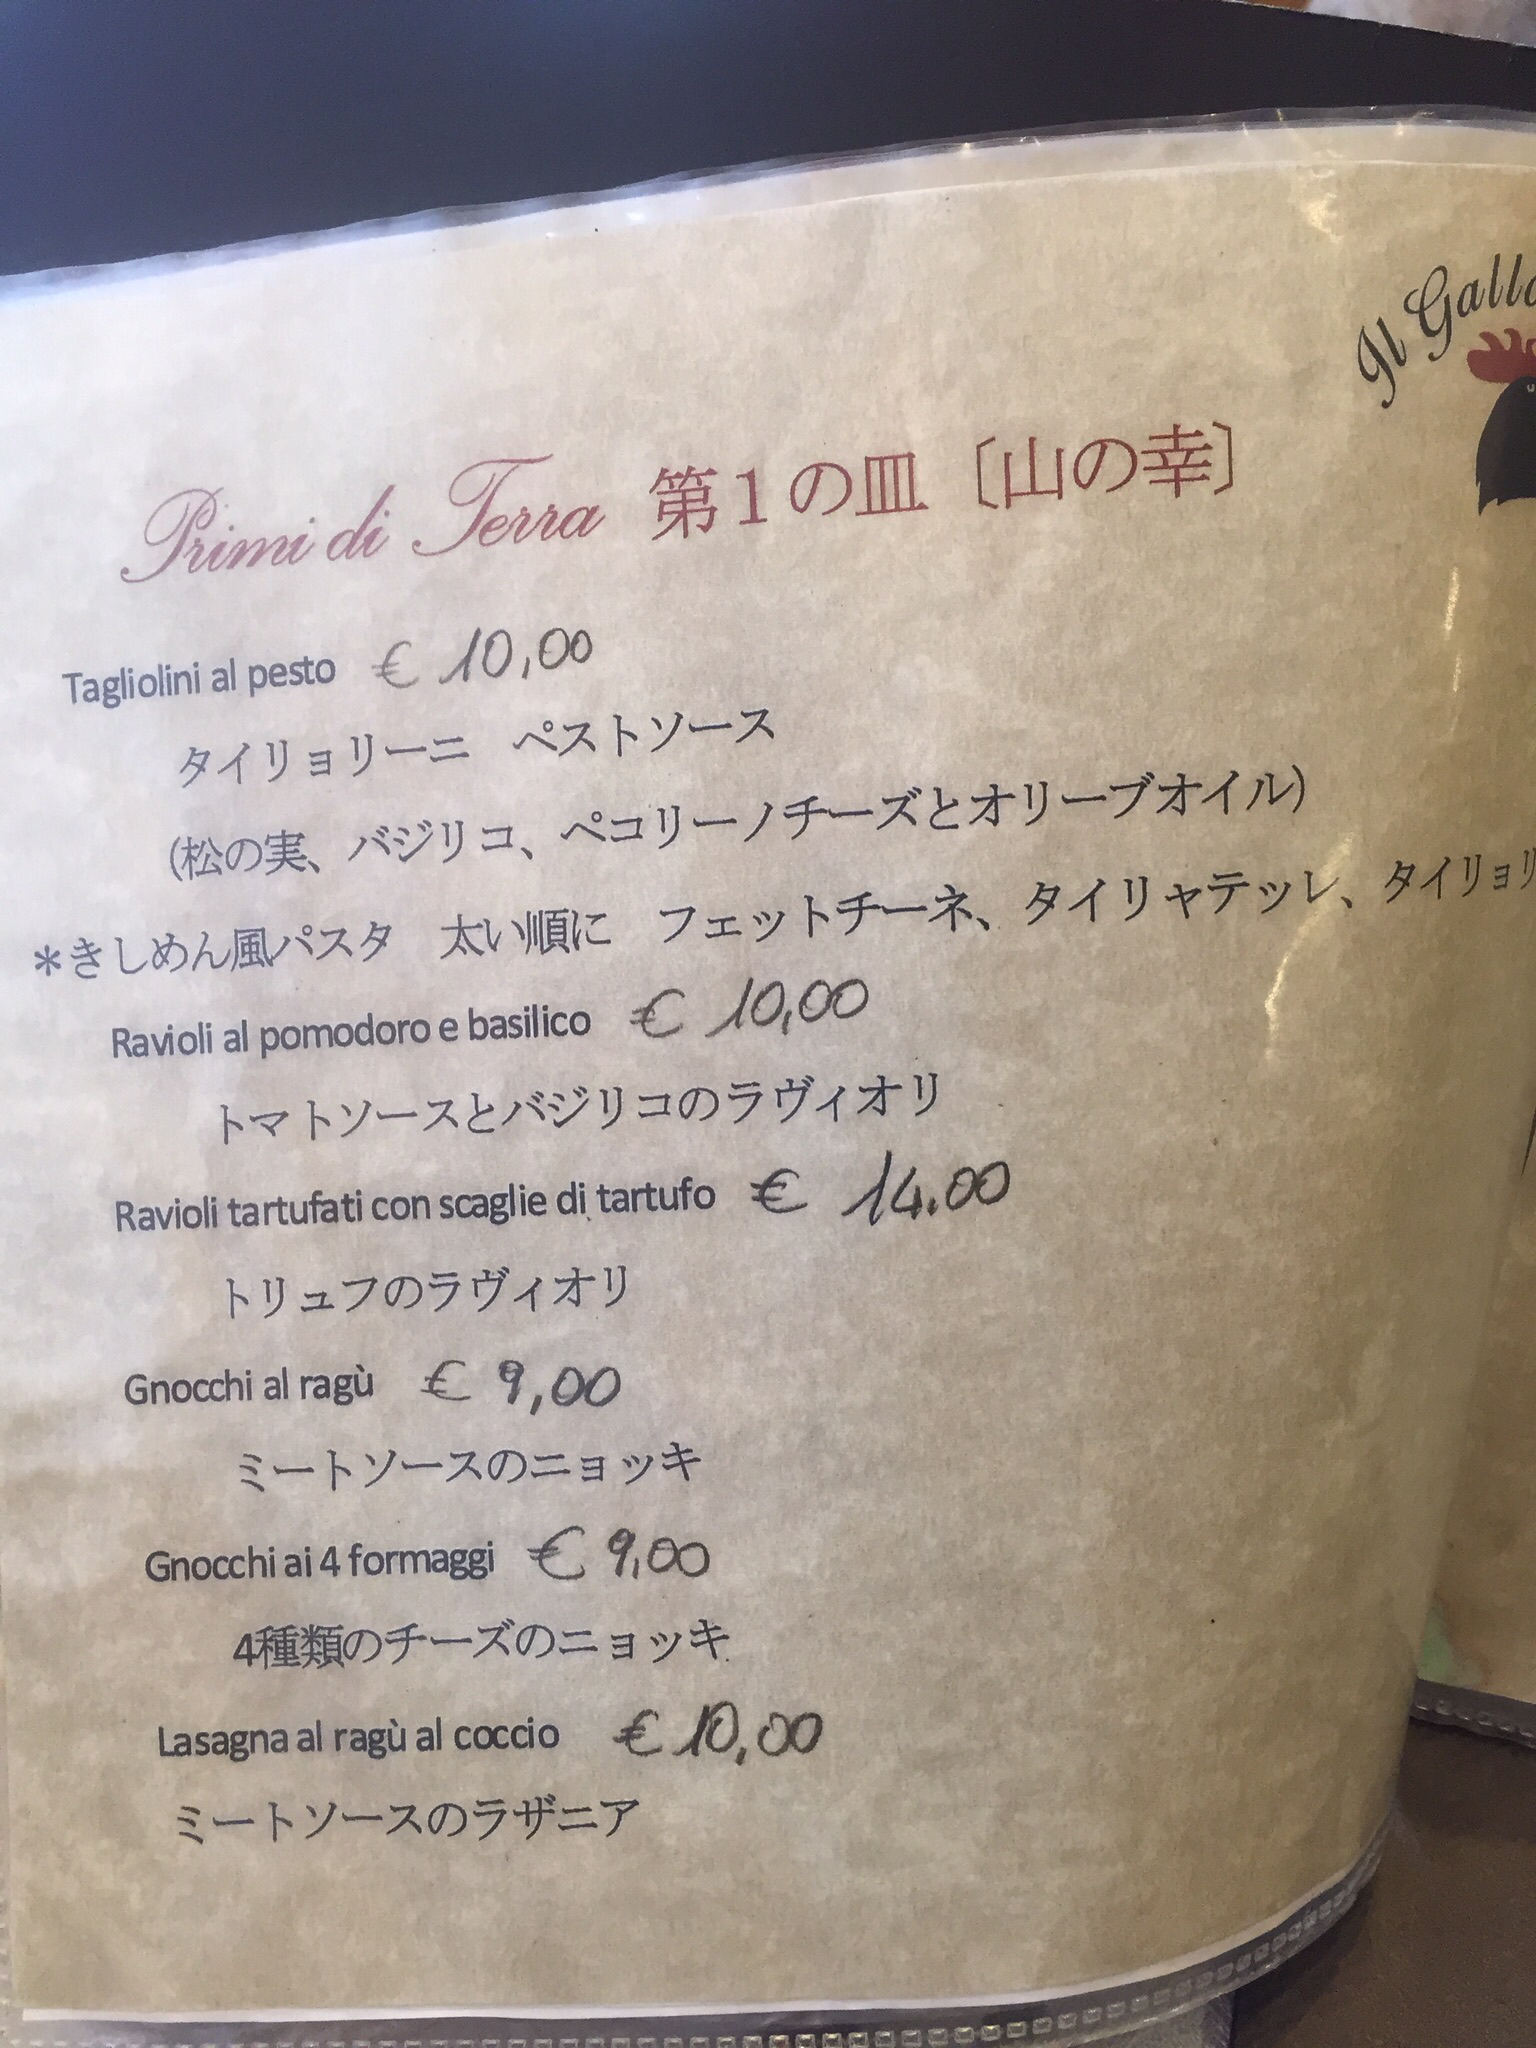 Il Gallo
Primi di Terra 第１の皿〔山の幸〕
Tagliolini al pesto € 10,00
タイリョリーニ ペストソース
(松の実、バジリコ、ペコリーノチーズとオリーブオイル)
＊きしめん風パスタ 太い順に フェットチーネ、タイリャテッレ、タイリョリ
Ravioli al pomodoro e basilico € 10,00
トマトソースとバジリコのラヴィオリ
Ravioli tartufati con scaglie di tartufo € 14.00
トリュフのラヴィオリ
Gnocchi al ragù € 9,00
ミートソースのニョッキ
Gnocchi ai 4 formaggi € 9,00
4種類のチーズのニョッキ
Lasagna al ragù al coccio € 10,00
ミートソースのラザニア